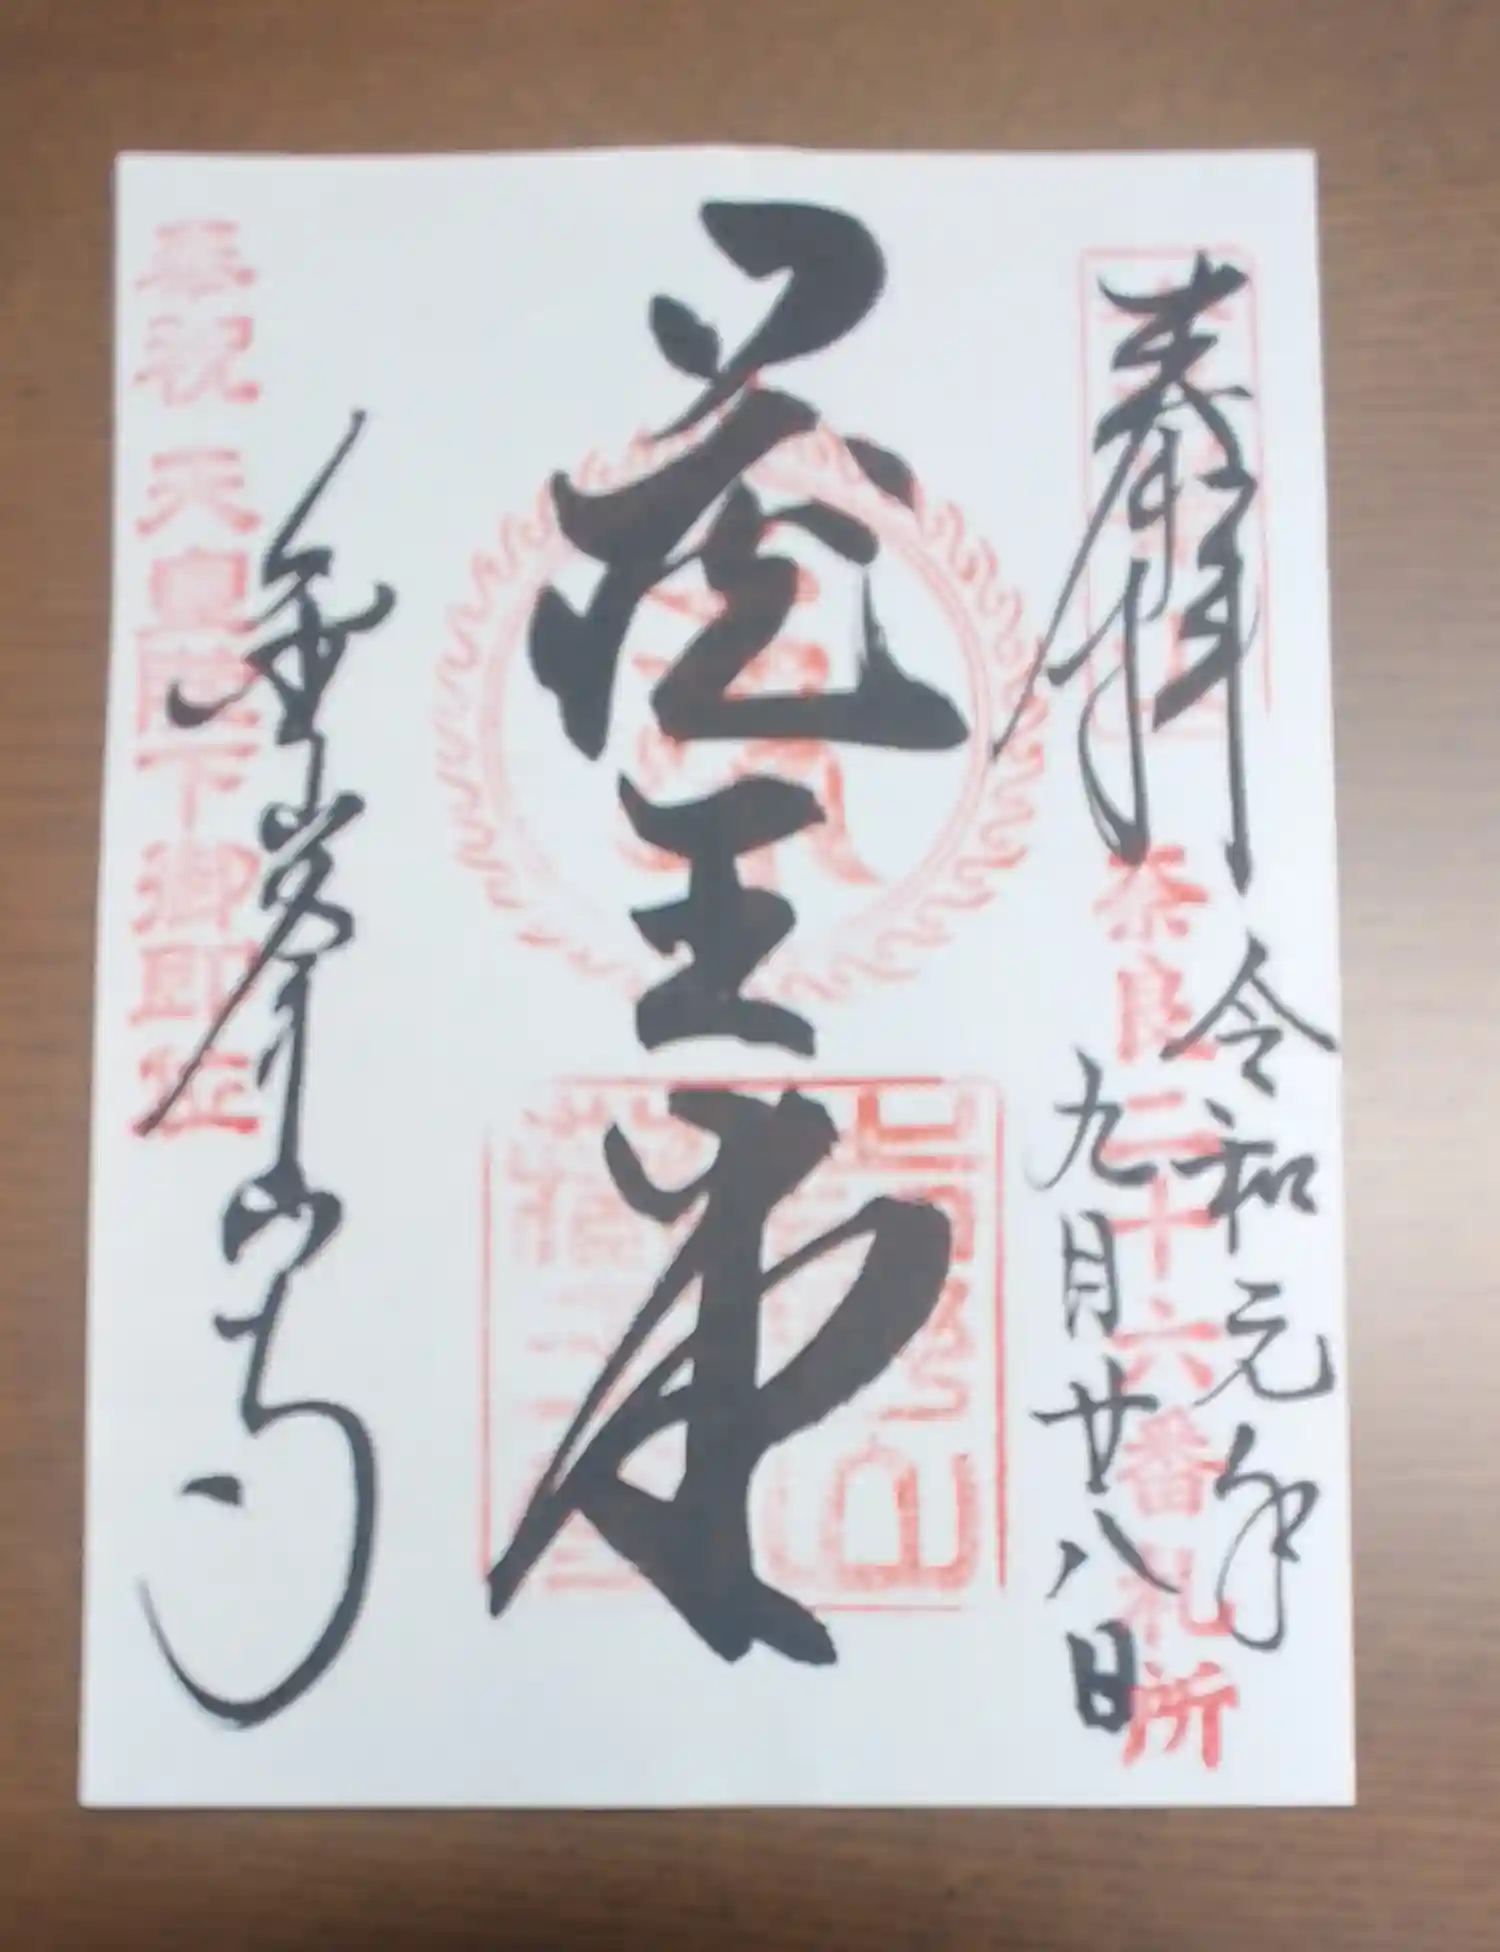 奉拝
奈良二十六番札所
令和元年
九月廿八日
蔵王堂
金峯山寺
奉祝 天皇陛下御即位